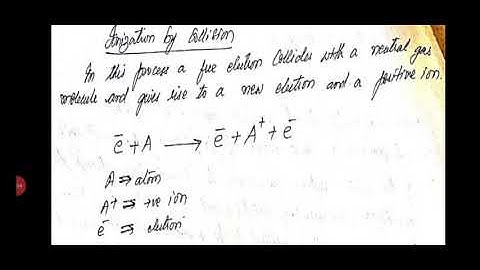 Ionization by Collision
In this process a free electron Collides with a neutral gas
molecule and gives rise to a new electron and a positive ion.
e⁻ + A ⟶ e⁻ + A⁺ + e⁻
A ⇒ atom
A⁺ ⇒ +ve ion
e⁻ ⇒ electron